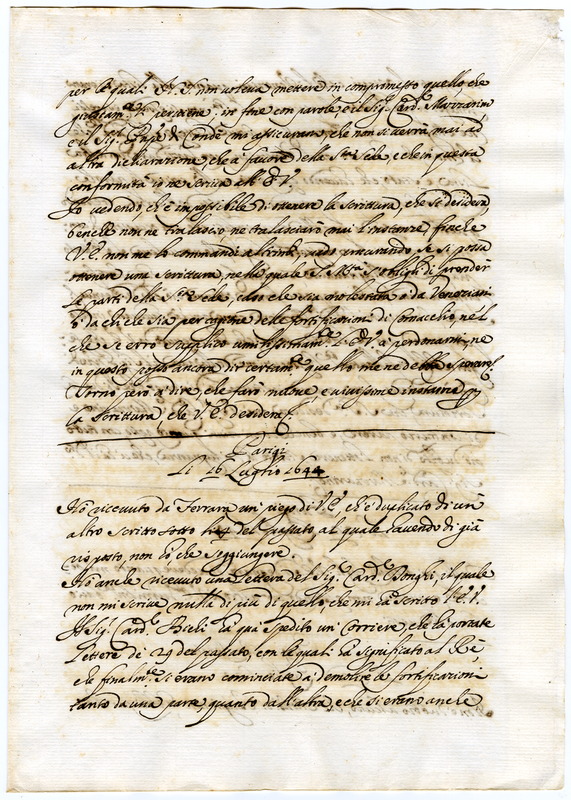 per le quali S. S. non voleva mettere in compromesso quello che
giustam.te in fine con parole, e il Sig.r Card. Mazzarini
e il Sig.r Prń.pe di Condé, mi assicurano, che non si verrà mai ad
altra dichiaratione, che a favore della S.ta Sede, e che in questa
conformità io ne scriva all' E. V.
Io vedendo, ch'è impossibile di ottenere la scrittura, che si desidera,
benche non ne tralascio, ne tralasciarò mai l'instanze, finche
V. E. non me lo commandi altrim.te, vado procurando se si possa
ottenere una scrittura, nella quale S. M.tà s'oblighi di prender
le parti della S.ta Sede, caso che sia molestata o da Venetiani
o da chi che sia per cagione delle fortificationi di Comachio, nel
che se erro supplico umilissimam.te l' E. V. à perdonarmi, ne
in questo posso ancora dir certam.te quello che ne debba sperare.
Torno però a dire, che farò nuove, e vivissime instanze p
la scrittura, che V. E. desidera.
Parigi
Li 16 Luglio 1644
Hò ricevuto da Ferrara un piego di V. E., ch'è duplicato di un
altro scritto sotto del passato, al quale havendo di già
risposto non hò che soggiungere.
Hò anche ricevuto una lettera del Sig.r Card. Donghi, il quale
non mi scrive nulla di più di quello, che mi hà scritto l' E. V.
Il Sig.r Card. Bichi hà quì spedito un Corriere, che hà portate
lettere de' 29 del passato, con le quali hà significato al Rè,
che finalm.te si erano cominciate a demolire le fortificationi
tanto da una parte, quanto dall'altra, e che si erano anche